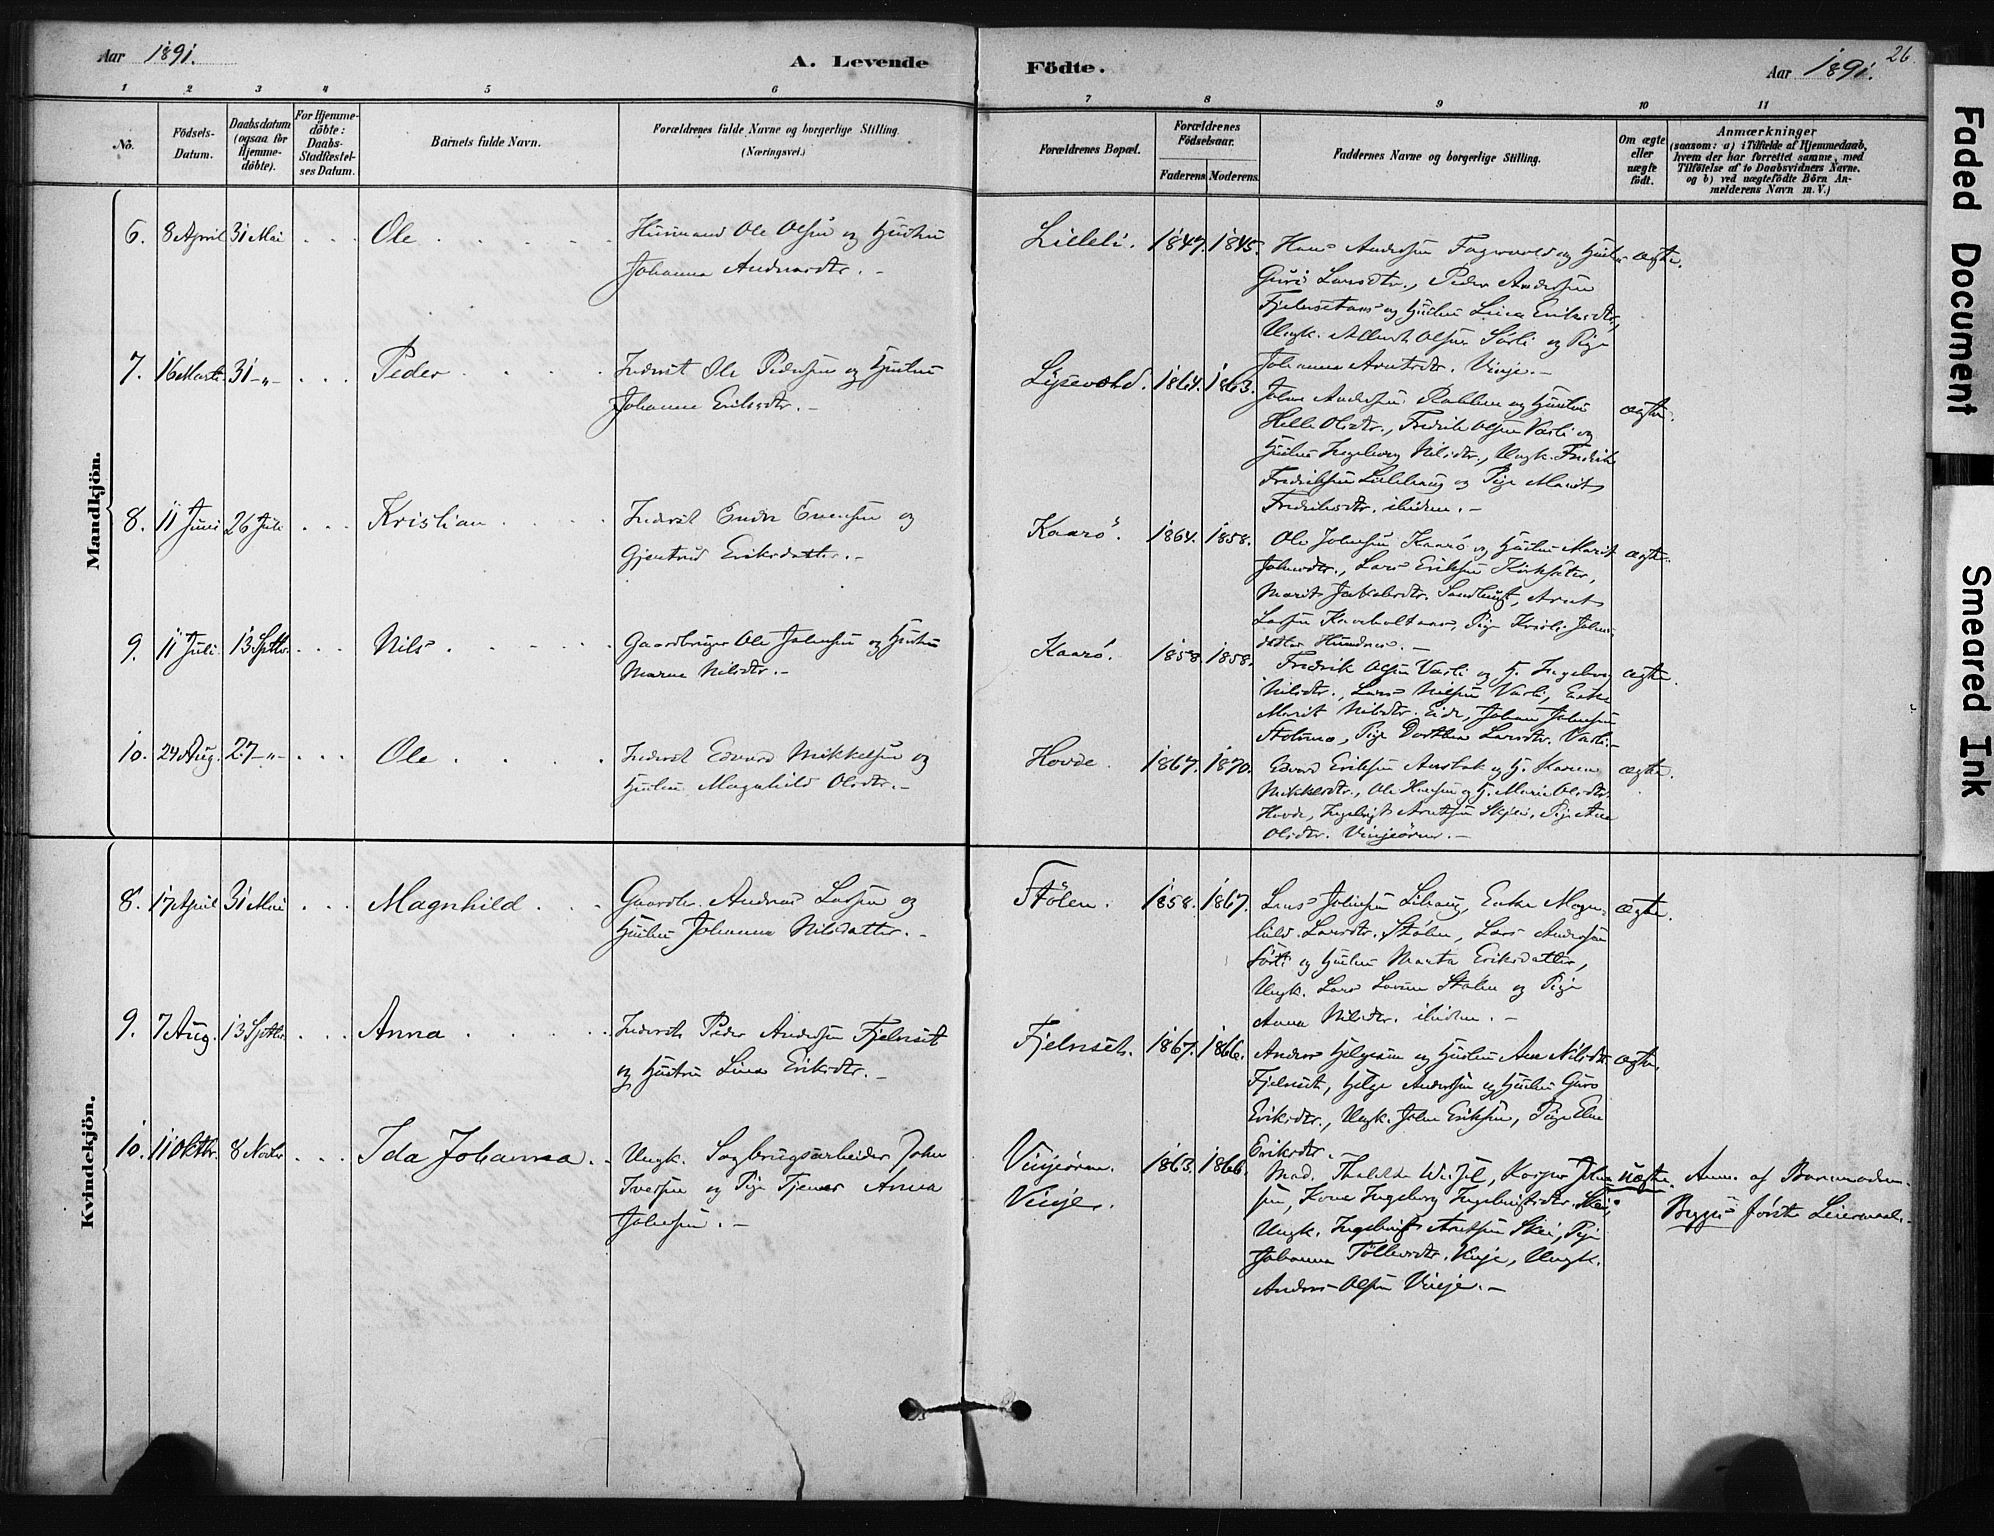 Aar 1891.
A. Levende
Födte.
Aar 1891.
26
1 2 3 4 5 6 7 8 9 10 11
No.
Födsels-
Datum.
Daabsdatum
(ogsaa for
Hjemme-
döbte).
For Hjemme-
döbte:
Daabs-
Stadfæstel-
ses Datum.
Barnets fulde Navn.
Forældrenes fulde Navne og borgerlige Stilling.
(Næringsvei.)
Forældrenes Bopæl.
Forældrenes
Födselsaar.
Faderens. Moderens.
Faddernes Navne og borgerlige Stilling.
Om ægte
eller
uægte
födt.
Anmærkninger
(saasom: a) i Tilfælde af Hjemmedaab,
hvem der har forrettet samme, med
Tilföielse af to Daabsvidners Navne,
og b) ved uægtefödte Börn An-
melderens Navn m. V.)
Mandkjön.
6. 8 April 31 Mai Ole Husmand Ole Olsen og Hustru
Johanna Andersdtr. -
Lilleli. 1847. 1845. Hans Andersen Fagervold og Hustru ægte.
Guri Larsdtr., Peder Andersen
Fjelnsetaas og Hustru Lina Eriksdtr.,
Ungk. Olsen Sörli og Pige
Johanna Arntsdtr. Vinje. -
7. 16 Marts 31 -"- Peder Inderst Ole Pedersen og Hustru
Johanna Eriksdtr. -
Lysevold. 1864. 1863. John Andersen og Hustru ægte.
Olsdtr., Fredrik Olsen Vasli og
Hustru Ingeborg Nilsdtr., Ungk. Fredrik
Fredriksen Lillehaug og Pige Marit
Fredriksdtr. ibidem. -
8. 11 Juni 26 Juli Kristian Inderst Endre Evensen og
Gjertrud Eriksdatter. -
Kaarö. 1864. 1858. Ole Johnsen Kaarö og Hustru Marit ægte.
Johnsdtr., Lars Eriksen
Marit Jakobsdtr. Arnt
Larsen Pige John-
datter -
9. 11 Juli 13 Septbr. Nils Gaardbruger Ole Johnsen og Hustru
Marie Nilsdtr. -
Kaarö. 1858. 1858. Fredrik Olsen Vasli og H. Ingeborg ægte.
Nilsdtr., Lars Nilsen Vasli, Enke
Marit Nilsdtr. Eide, Johan Johnsen
Pige Dorthea Larsdtr. Vasli. -
10. 24 Aug. 27 -"- Ole Inderst Edvard Mikkelsen og
Hustru Magnhild Olsdtr. -
Hovde. 1867. 1870. Edvard Eriksen og H. Karen ægte.
Mikkelsdtr., Ole Hansen og H. Marie Olsdtr.
Hovde, Ingebrigt Arntsen Skjei, Pige Ane
Olsdtr. Vinjeören. -
Kvindekjön.
8. 17 April 31 Mai Magnhild Gaardbr. Andreas Larsen og
Hustru Johanna Nilsdatter. -
Stölen. 1858. 1867. Lars Johnsen Lihaug, Enke Magn- ægte.
hild Larsdtr. Stölen, Lars Andersen
Sörli og Hustru Marta Eriksdatter,
Ungk. Lars Larsen Stölen og Pige
Anna Nilsdtr. ibidem. -
9. 7 Aug. 13 Septbr. Anna Inderst Peder Andersen Fjelnset
og Hustru Lina Eriksdtr. -
Fjelnset. 1867. 1866. Anders Helgesen og Hustru Ane Nilsdtr. ægte.
Fjelnset, Helge Andersen og Hustru Guro
Eriksdtr., Ungk. John Eriksen, Pige Eline
Eriksdtr. -
10. 11 Oktbr. 8 Novbr. Ida Johanna Ungk. Sagbrugsarbeider John
Iversen og Pige Tjener Anna
Johnsen. -
Vinjeören.
Vinje.
1863. 1866. Mad. Wessel, Kasper uægte. Anm. af Barnemoderen.
sen, Kone Ingeborg Ingebrigtsdtr. Skei, Begges förste Leiermaal. -
Ungk. Ingebrigt Arntsen Skei, Pige
Johanna Töllevsdtr. Vinje, Ungk.
Anders Olsen Vinje. -
Faded Document
Smeared Ink